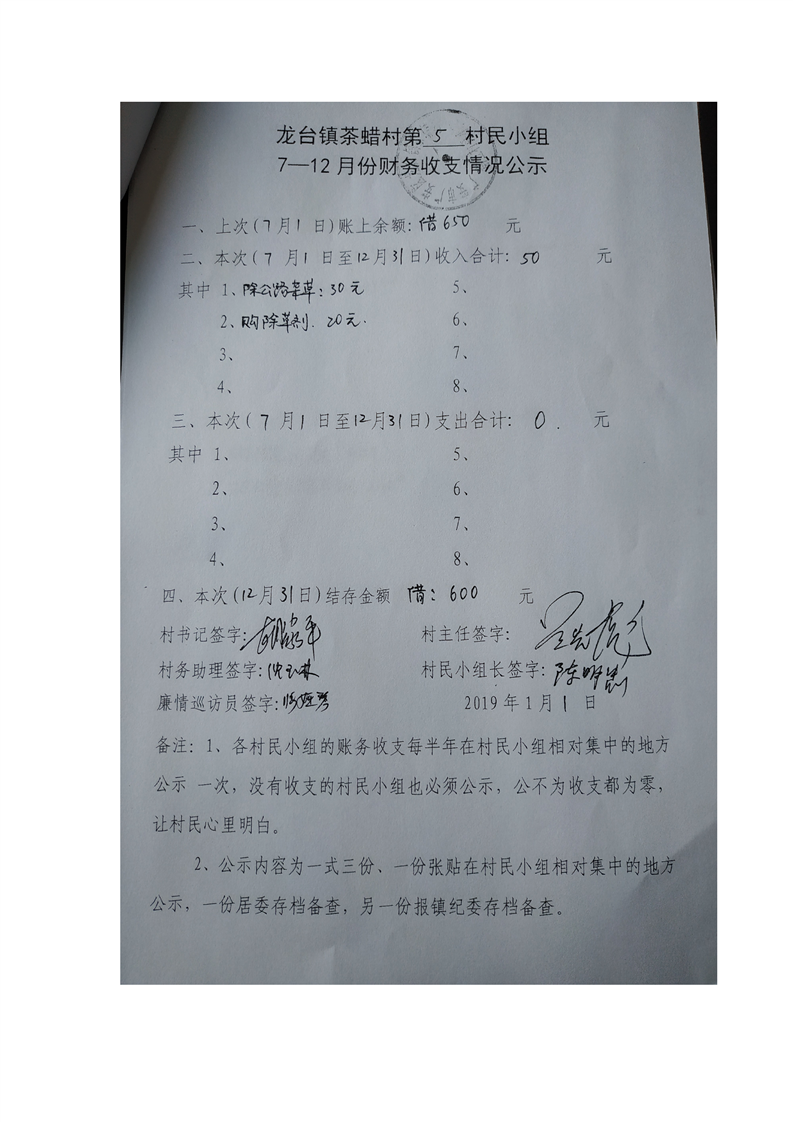 龙台镇茶蜡村第 5 村民小组
7—12月份财务收支情况公示
一、上次(7月1 日)账上余额:借650 元
二、本次(7 月1 日至12月31日)收入合计:50 元
其中 1、除公路杂草:30元 5、
2、购除草剂.20元. 6、
3、 7、
4、 8、
三、本次(7月1日至12月31日)支出合计: 0. 元
其中 1、 5、
2、 6、
3、 7、
4、 8、
四、本次(12月31日)结存金额 借:600 元
村书记签字: 村主任签字:
村务助理签字: 村民小组长签字:陈明
廉情巡访员签字: 2019年1月1日
备注:1、各村民小组的账务收支每半年在村民小组相对集中的地方
公示 一次,没有收支的村民小组也必须公示,公不为收支都为零,
让村民心里明白。
2、公示内容为一式三份、一份张贴在村民小组相对集中的地方
公示,一份居委存档备查,另一份报镇纪委存档备查。